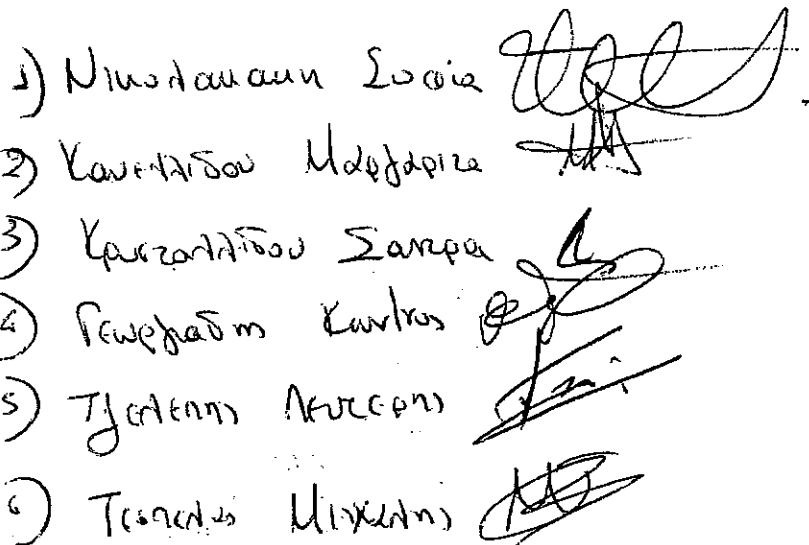 1) Νικολακακη Σοφία
2) Κανελλίδου Μαργαρίτα
3) Κρυσταλλίδου Σάντρα
4) Γεωργιαδης Κων/νος
5) Τζελεπης Λευτερης
6) Μιχαλης